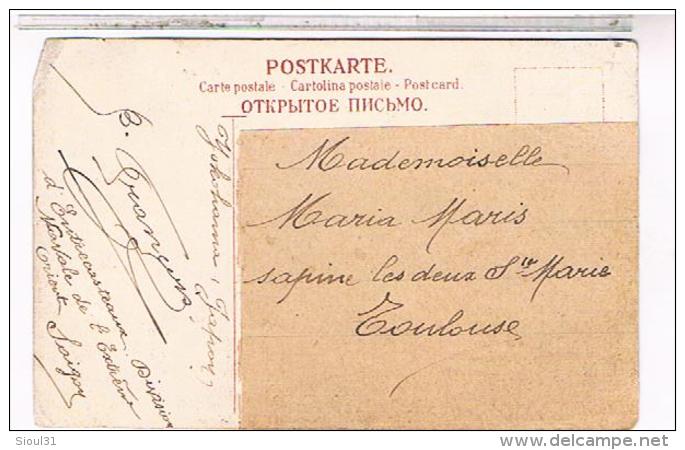 POSTKARTE.
Carte postale - Cartolina postale - Postcard.
ОТКРЫТОЕ ПИСЬМО.
Mademoiselle
Maria Maris
sapine les deux Ste Marie
Toulouse
Yokohama, Japon
E. François
d'Entrecasteaux Division
Navale de l'Extrême
Orient Saigon
Sioul31
http://www.delcampe.net